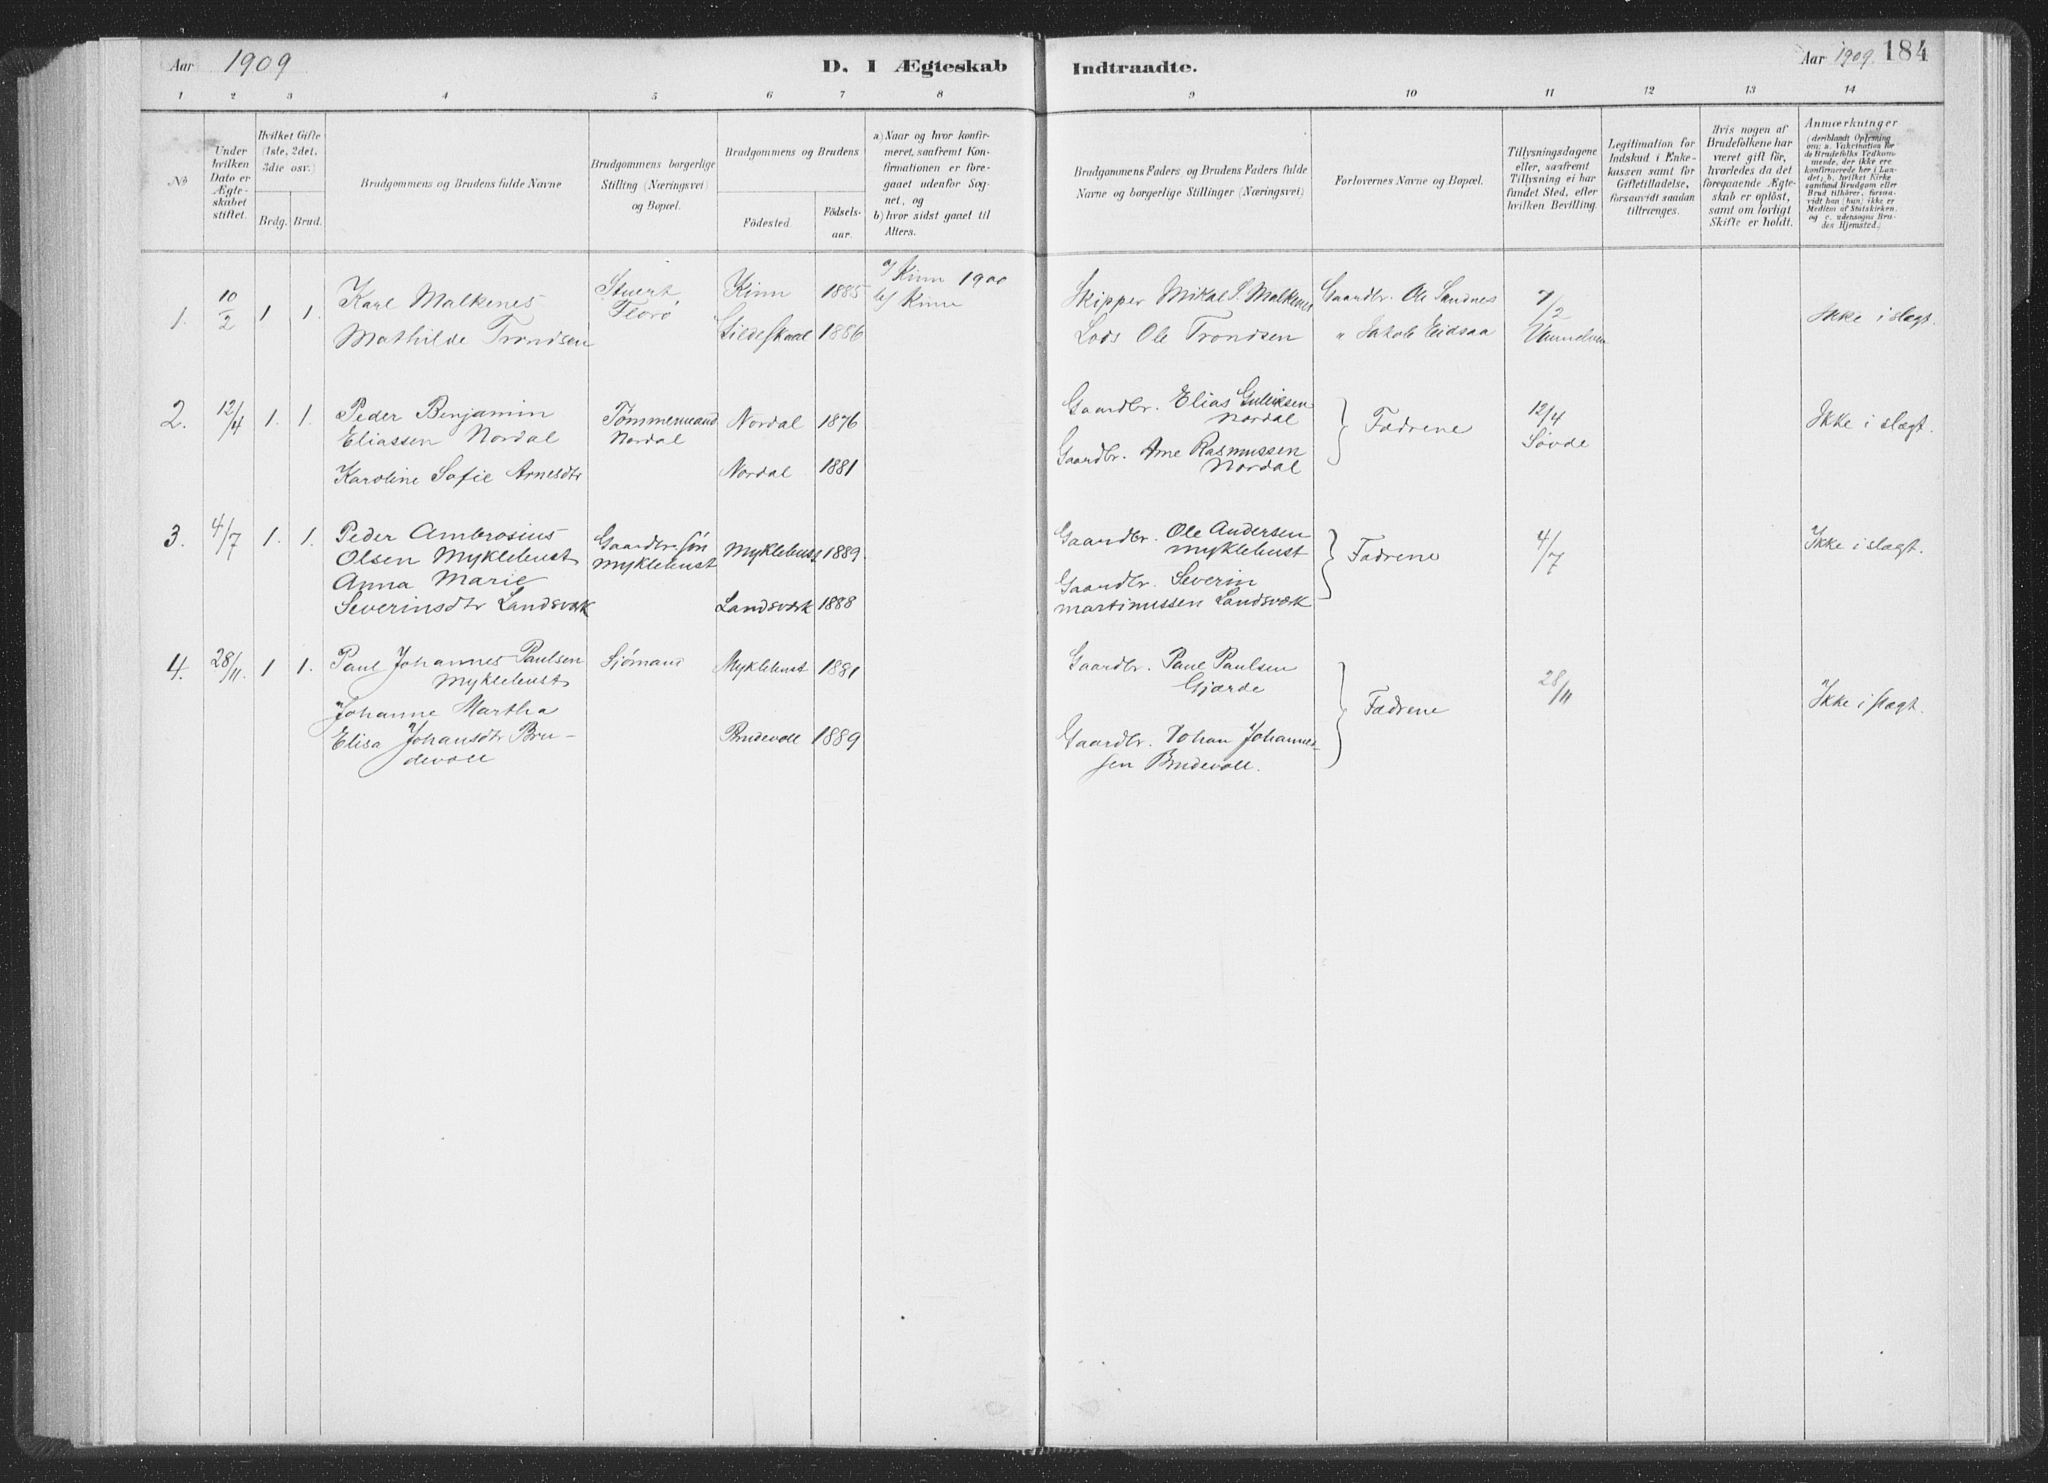 Aar 1909
D. I Ægteskab Indtraadte.
Aar 1909. 184
1 2 3 4 5 6 7 8 9 10 11 12 13 14
No
Under hvilken Dato er Ægteskabet stiftet.
Hvilket Gifte (1ste, 2det, 3die osv.)
Brdg. Brud.
Brudgommens og Brudens fulde Navne
Brudgommens borgerlige Stilling (Næringsvei) og Bopæl.
Brudgommens og Brudens
Födested. Födselsaar.
a) Naar og hvor konfirmeret, saafremt Konfirmationen er foregaaet udenfor Sognet, og
b) hvor sidst gaaet til Alters.
Brudgommens Faders og Brudens Faders fulde Navne og borgerlige Stillinger (Næringsvei)
Forlovernes Navne og Bopæl.
Tillysningsdagene eller, saafremt Tillysning ei har fundet Sted, efter hvilken Bevilling.
Legitimation for Indskud i Enkekassen samt for Giftetilladelse, forsaavidt saadan tiltrænges.
Hvis nogen af Brudefolkene har været gift för, hvorledes da det foregaaende Ægteskab er oplöst, samt om lovligt Skifte er holdt.
Anmærkninger
(deriblandt Oplysning om: a. Vakcination for de Brudefolks Vedkommende, der ikke ere konfirmerede her i Landet; b. hvilket Kirkesamfund Brudgom eller Brud tilhörer, forsaavidt han (hun) ikke er Medlem af Statskirken, og c. udensogns Brudes Hjemsted.)
1. 10/2 1 1. Karl Malkenes Stuert Kinn 1885 a/ Kinn 1900 Skipper Mikal S. Malkenes Gaardbr. Ole Sandnes 7/2 Ikke i slægt.
Florø b/ Kinn
Mathilde Trondsen Gildeskaal 1886 Lods Ole Trondsen " Jakob Eidsaa
2. 12/4 1. 1. Peder Benjamin Tømmermand Nordal 1876 Gaardbr. Elias Gulliksen Fædrene 12/4 Ikke i slægt.
Eliassen Nordal Nordal Nordal Søvde
Karoline Sofie Arnesdtr Nordal 1881 Gaardbr. Arne Rasmussen
Nordal
3. 4/7 1. 1. Peder Ambrosius Gaardbr. søn Myklebust 1889 Gaardbr. Ole Andersen Fædrene 4/7 Ikke i slægt.
Olsen Myklebust Myklebust Myklebust
Anna Marie Gaardbr. Severin
Severinsdtr Landsværk Landsværk 1888 Martinussen Landsværk
4. 28/11. 1 1. Paul Johannes Paulsen Sjømand Myklebust 1881 Gaardbr. Paul Paulsen Fædrene 28/11 Ikke i slægt.
Myklebust Gjærde
Johanne Martha
Elisa Johansdtr Bru- Brudevoll 1889 Gaardbr. Johan Johannes-
devoll sen Brudevoll.